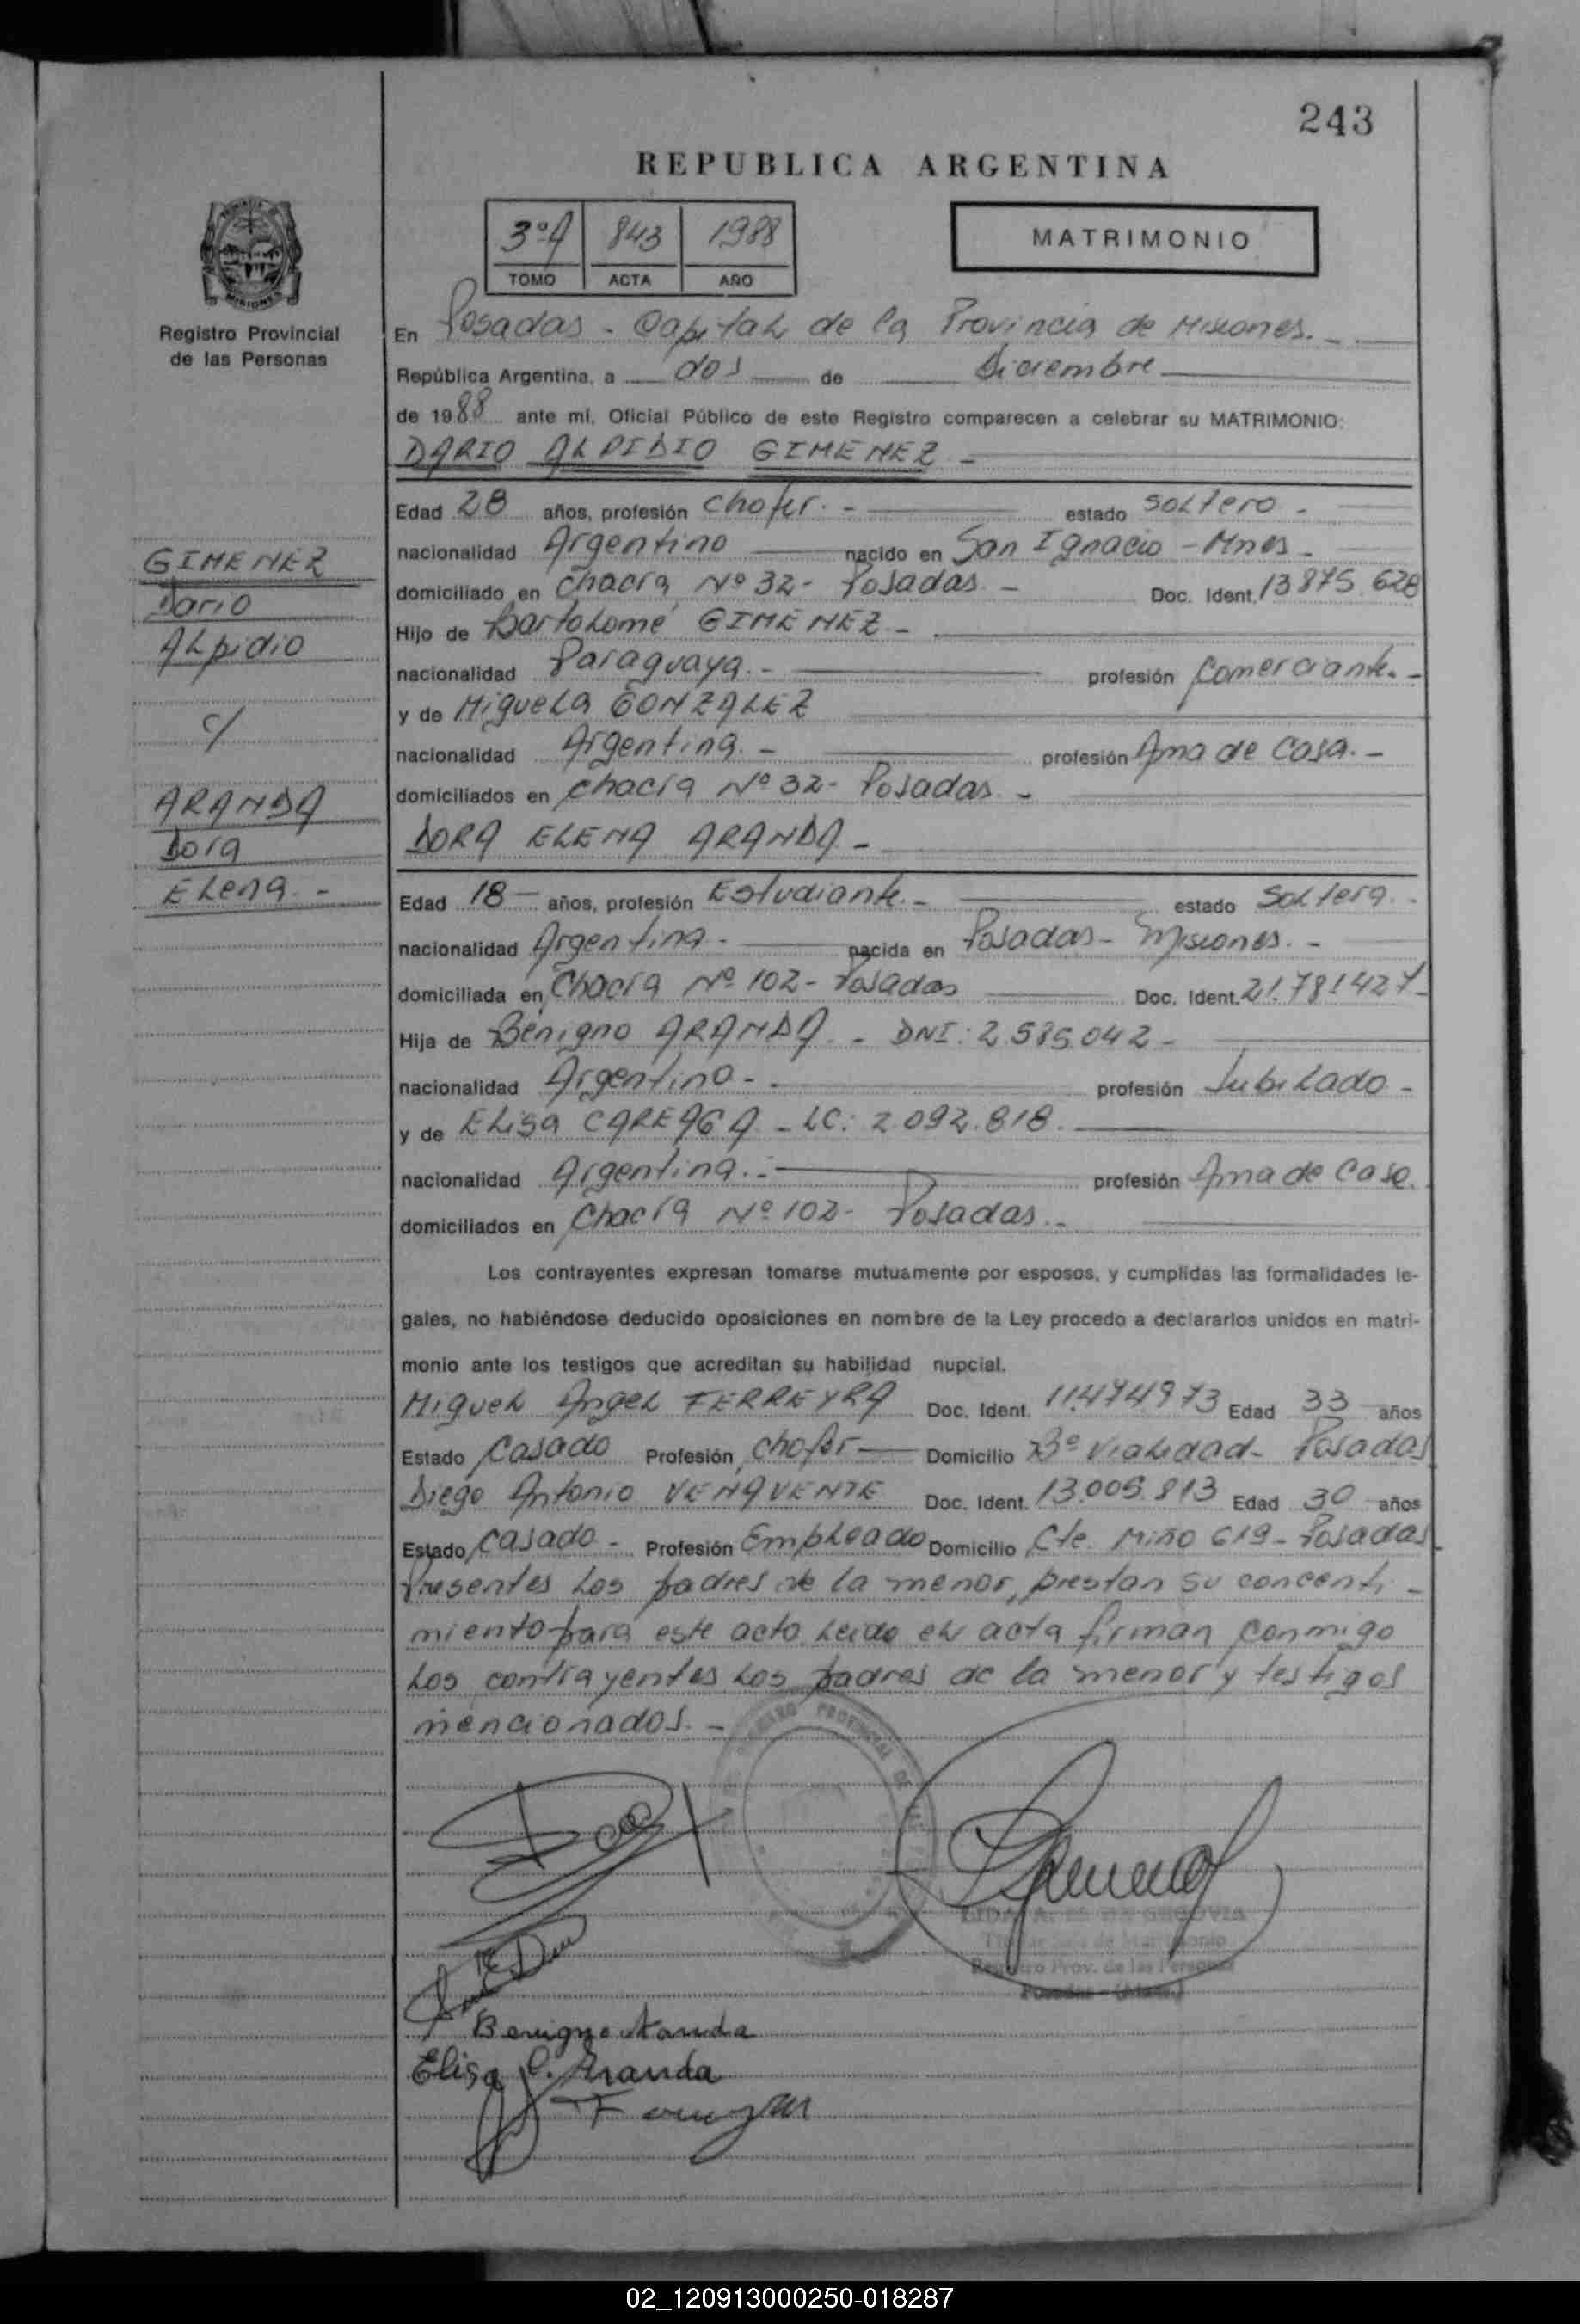 243
REPUBLICA ARGENTINA
3ºA 843 1988
TOMO ACTA AÑO
MATRIMONIO
MISIONES
Registro Provincial
de las Personas
En Posadas - Capital de la Provincia de Misiones. -
República Argentina, a dos de Diciembre
de 1988 ante mí, Oficial Público de este Registro comparecen a celebrar su MATRIMONIO:
DARIO ALPIDIO GIMENEZ -
Edad 28 años, profesión Chofer. - estado Soltero -
nacionalidad Argentino nacido en San Ignacio - Mnes -
domiciliado en Chacra Nº 32 - Posadas - Doc. Ident. 13 875.628
Hijo de Bartolomé GIMENEZ -
nacionalidad Paraguaya. - profesión Comerciante. -
y de Miguela GONZALEZ
nacionalidad Argentina. - profesión Ama de Casa. -
domiciliados en Chacra Nº 32 - Posadas -
DORA ELENA ARANDA -
Edad 18 - años, profesión Estudiante. - estado Soltera. -
nacionalidad Argentina - nacida en Posadas - Misiones. -
domiciliada en Chacra Nº 102 - Posadas Doc. Ident. 21.781427 -
Hija de Benigno ARANDA - DNI: 2.585.042 -
nacionalidad Argentino - profesión Jubilado -
y de Elisa CAREAGA - LC: 2.092.818.
nacionalidad Argentina. - profesión Ama de Casa.
domiciliados en Chacra Nº 102 - Posadas. -
Los contrayentes expresan tomarse mutuamente por esposos, y cumplidas las formalidades le-
gales, no habiéndose deducido oposiciones en nombre de la Ley procedo a declararlos unidos en matri-
monio ante los testigos que acreditan su habilidad nupcial.
Miguel Angel FERREYRA Doc. Ident. 11.474973 Edad 33 años
Estado Casado Profesión Chofer Domicilio Bº Vialidad - Posadas
Diego Antonio VENAVENTE Doc. Ident. 13.005.813 Edad 30 años
Estado Casado - Profesión Empleado Domicilio Cte. Miño 619 - Posadas
Presentes los padres de la menor, prestan su concenti -
miento para este acto. Leido el acta firman conmigo
los contrayentes los padres de la menor y testigos
mencionados. -
GIMENEZ
Dario
Alpidio
c/
ARANDA
Dora
Elena. -
REGISTRO PROVINCIAL DE
SEGOVIA
Registro Prov. de las Personas
Benigno Aranda
Elisa C. Aranda
02_120913000250-018287